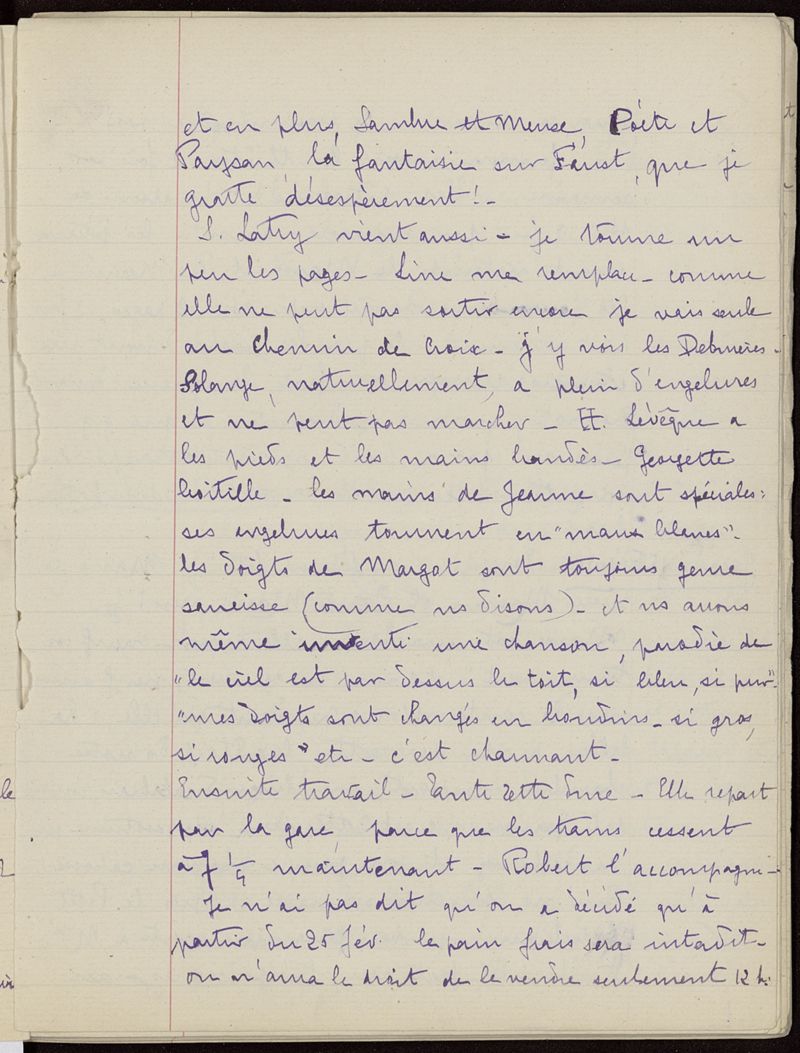 et en plus, Sambre et Meuse, Poète et
Paysan, la fantaisie sur Faust, que je
gratte désespèrement! -
S. Latry vient aussi - je tourne un
peu les pages - Line me remplace - comme
elle ne peut pas sortir encore je vais seule
au chemin de Croix - j'y vois les
Solange, naturellement, a plein d'engelures
et ne peut pas marcher - H. Lévêque a
les pieds et les mains bandés - Georgette
boitille - les mains de Jeanne sont spéciales:
ses engelures tournent en "maux blancs".
les doigts de Margot sont toujours genre
saucisse (comme ns disons) - et ns avons
même inventé une chanson, parodie de
"le ciel est par dessus le toit, si bleu, si pur"
"mes doigts sont changés en boudins - si gros,
si rouges" etc - c'est charmant -
Ensuite travail - Tante Zette dîne - Elle repart
par la gare, parce que les trams cessent
à 7 1/4 maintenant - Robert l'accompagne -
Je n'ai pas dit qu'on a décidé qu'à
partir du 25 fév. le pain frais sera interdit -
on n'aura le droit de le vendre seulement 12 h.